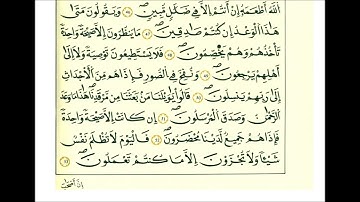 اللَّهُ أَطْعَمَهُ إِنْ أَنتُمْ إِلَّا فِي ضَلَالٍ مُّبِينٍ ٤٧ وَيَقُولُونَ مَتَىٰ
هَٰذَا الْوَعْدُ إِن كُنتُمْ صَادِقِينَ ٤٨ مَا يَنظُرُونَ إِلَّا صَيْحَةً وَاحِدَةً
تَأْخُذُهُمْ وَهُمْ يَخِصِّمُونَ ٤٩ فَلَا يَسْتَطِيعُونَ تَوْصِيَةً وَلَا إِلَىٰ
أَهْلِهِمْ يَرْجِعُونَ ٥٠ وَنُفِخَ فِي الصُّورِ فَإِذَا هُم مِّنَ الْأَجْدَاثِ
إِلَىٰ رَبِّهِمْ يَنسِلُونَ ٥١ قَالُوا يَا وَيْلَنَا مَن بَعَثَنَا مِن مَّرْقَدِنَا هَٰذَا مَا وَعَدَ
الرَّحْمَٰنُ وَصَدَقَ الْمُرْسَلُونَ ٥٢ إِن كَانَتْ إِلَّا صَيْحَةً وَاحِدَةً
فَإِذَا هُمْ جَمِيعٌ لَّدَيْنَا مُحْضَرُونَ ٥٣ فَالْيَوْمَ لَا تُظْلَمُ نَفْسٌ
شَيْئًا وَلَا تُجْزَوْنَ إِلَّا مَا كُنتُمْ تَعْمَلُونَ ٥٤
إِنَّ أَصْحَابَ